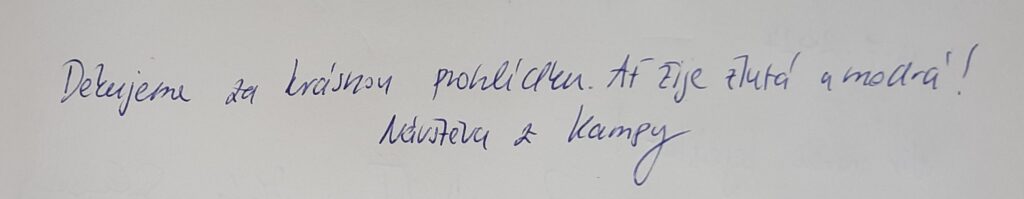 Děkujeme za krásnou prohlídku. Ať žije žlutá a modrá!
Návštěva z Kampy